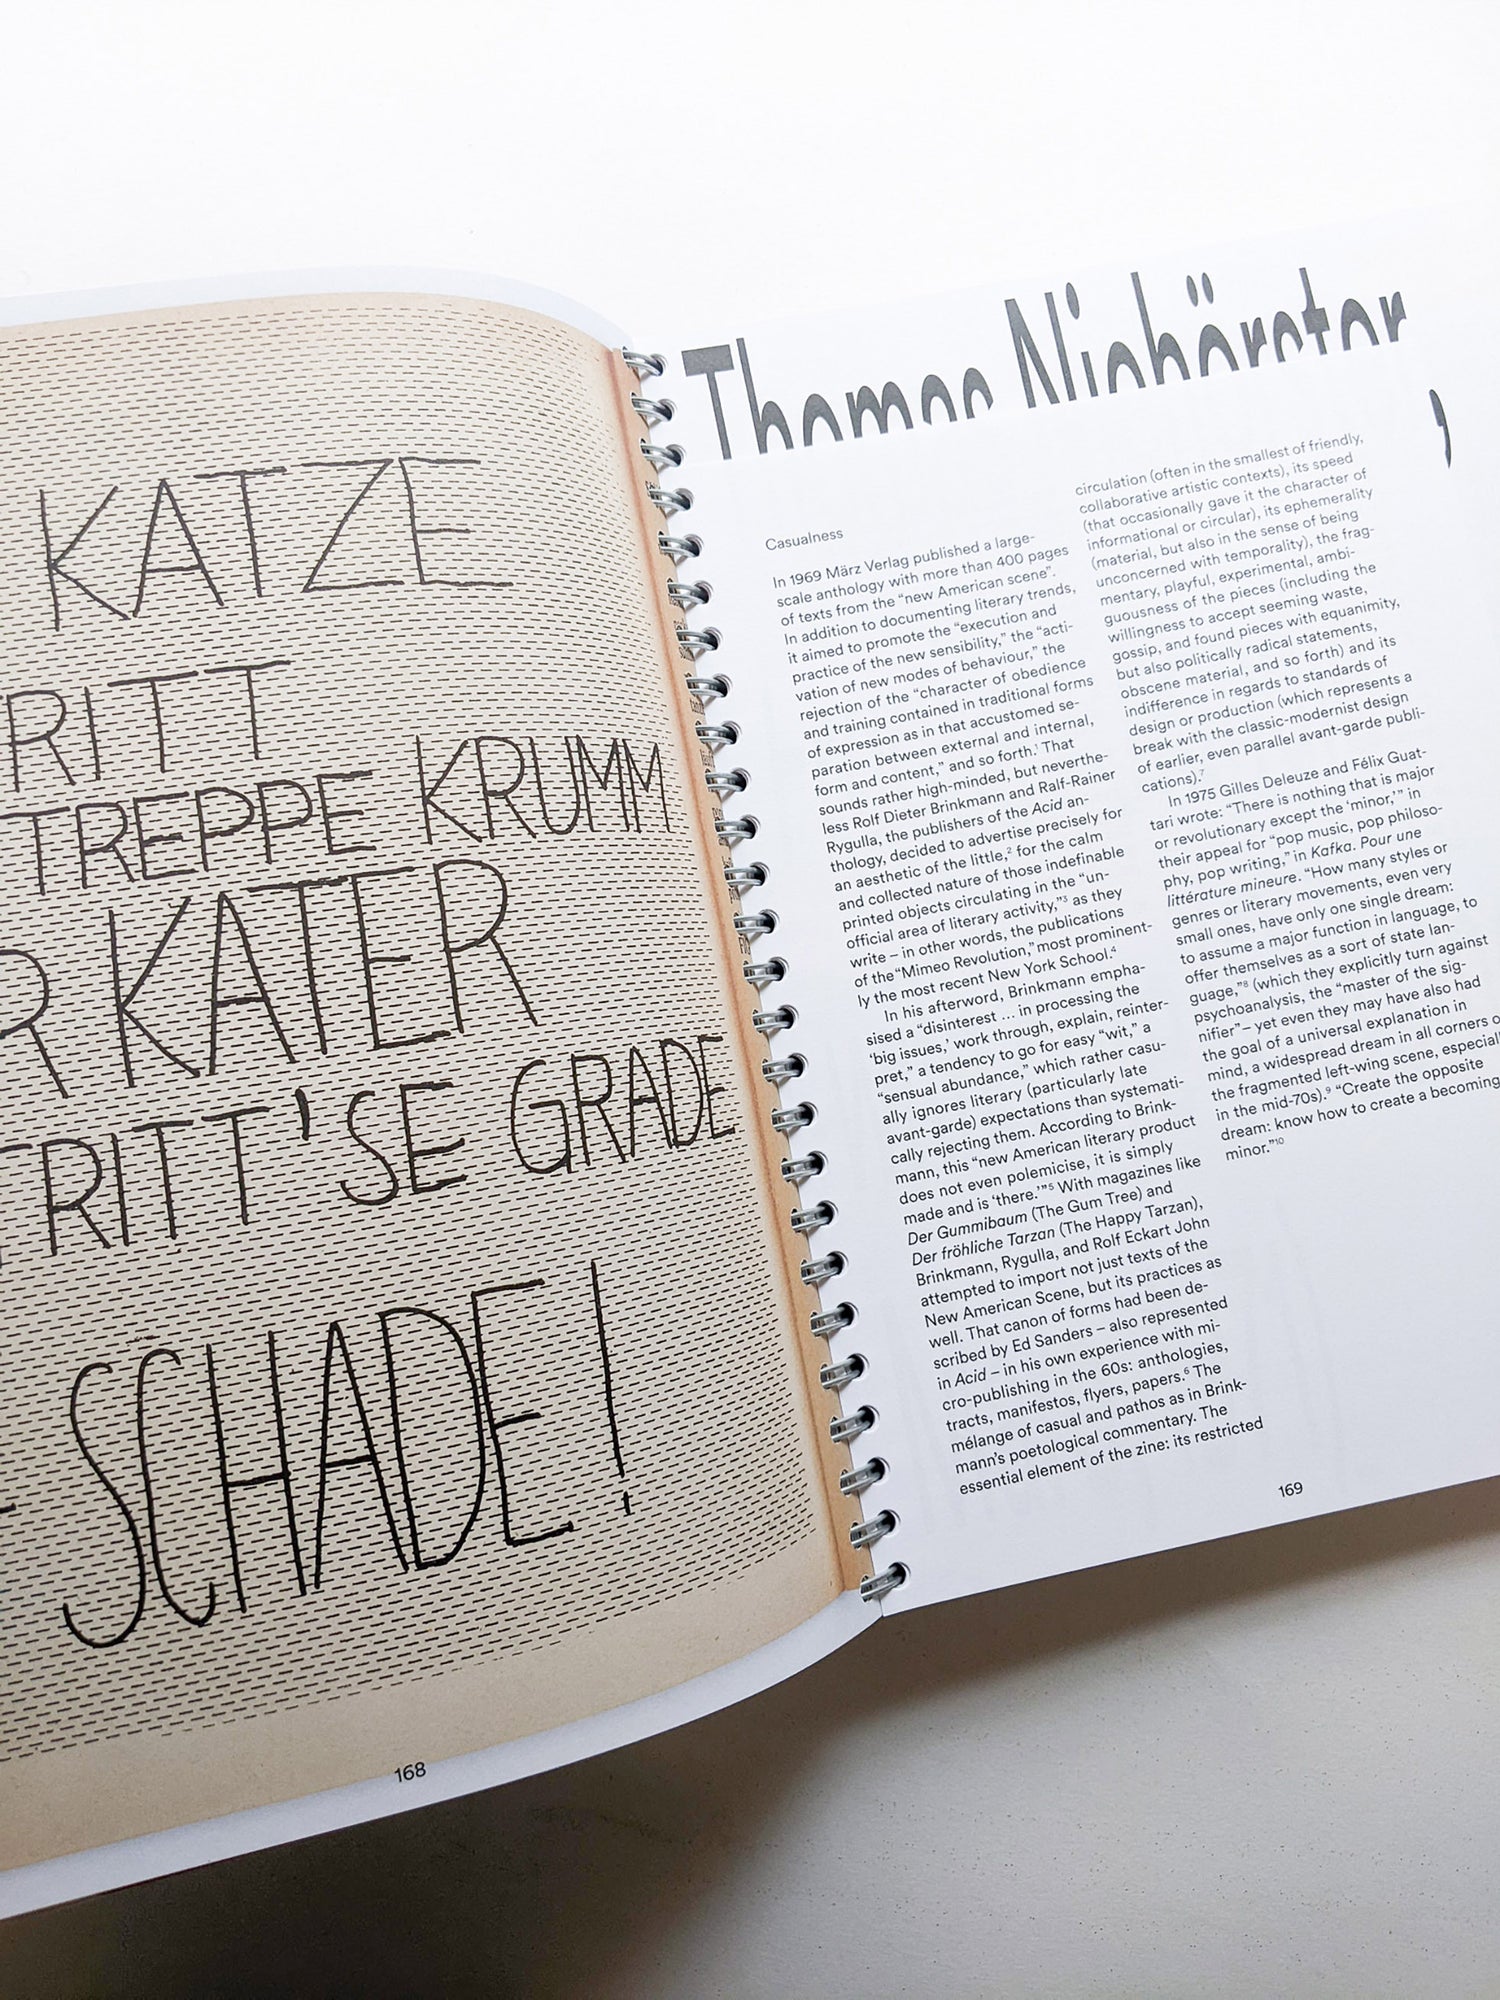 KATZE
RITT
TREPPE KRUMM
R KATER
TRITT'SE GRADE
- SCHADE!
168
Thomas Niehörster
Casualness
In 1969 März Verlag published a large-
scale anthology with more than 400 pages
of texts from the “new American scene”.
In addition to documenting literary trends,
it aimed to promote the “execution and
practice of the new sensibility,” the “acti-
vation of new modes of behaviour,” the
rejection of the “character of obedience
and training contained in traditional forms
of expression as in that accustomed se-
paration between external and internal,
form and content,” and so forth.¹ That
sounds rather high-minded, but neverthe-
less Rolf Dieter Brinkmann and Ralf-Rainer
Rygulla, the publishers of the Acid an-
thology, decided to advertise precisely for
an aesthetic of the little,² for the calm
and collected nature of those indefinable
printed objects circulating in the “un-
official area of literary activity,”³ as they
write – in other words, the publications
of the “Mimeo Revolution,” most prominent-
ly the most recent New York School.⁴
In his afterword, Brinkmann empha-
sised a “disinterest ... in processing the
‘big issues,’ work through, explain, reinter-
pret,” a tendency to go for easy “wit,” a
“sensual abundance,” which rather casu-
ally ignores literary (particularly late
avant-garde) expectations than systemati-
cally rejecting them. According to Brink-
mann, this “new American literary product
does not even polemicise, it is simply
made and is ‘there.’”⁵ With magazines like
Der Gummibaum (The Gum Tree) and
Der fröhliche Tarzan (The Happy Tarzan),
Brinkmann, Rygulla, and Rolf Eckart John
attempted to import not just texts of the
New American Scene, but its practices as
well. That canon of forms had been de-
scribed by Ed Sanders – also represented
in Acid – in his own experience with mi-
cro-publishing in the 60s: anthologies,
tracts, manifestos, flyers, papers.⁶ The
mélange of casual and pathos as in Brink-
mann’s poetological commentary. The
essential element of the zine: its restricted
circulation (often in the smallest of friendly,
collaborative artistic contexts), its speed
(that occasionally gave it the character of
informational or circular), its ephemerality
(material, but also in the sense of being
unconcerned with temporality), the frag-
mentary, playful, experimental, ambi-
guousness of the pieces (including the
willingness to accept seeming waste,
gossip, and found pieces with equanimity,
but also politically radical statements,
obscene material, and so forth) and its
indifference in regards to standards of
design or production (which represents a
break with the classic-modernist design
of earlier, even parallel avant-garde publi-
cations).⁷
In 1975 Gilles Deleuze and Félix Guat-
tari wrote: “There is nothing that is major
or revolutionary except the ‘minor,’” in
their appeal for “pop music, pop philoso-
phy, pop writing,” in Kafka. Pour une
littérature mineure. “How many styles or
genres or literary movements, even very
small ones, have only one single dream:
to assume a major function in language, to
offer themselves as a sort of state lan-
guage,”⁸ (which they explicitly turn against
psychoanalysis, the “master of the sig-
nifier” – yet even they may have also had
the goal of a universal explanation in
mind, a widespread dream in all corners o
the fragmented left-wing scene, especiall
in the mid-70s).⁹ “Create the opposite
dream: know how to create a becoming
minor.”¹⁰
169